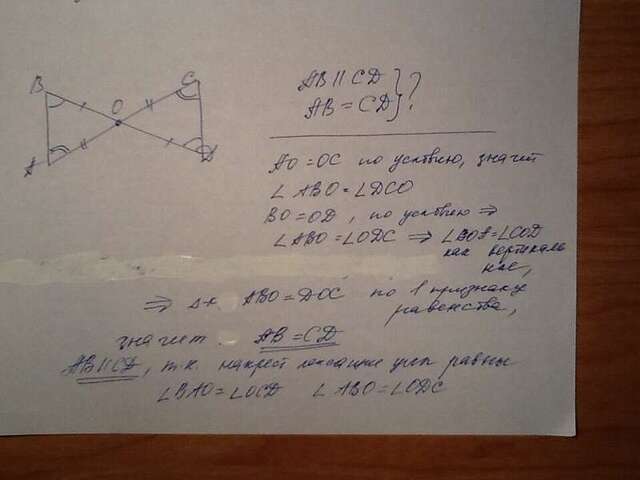 B
C
O
A
D
AB || CD }
AB = CD } ?
AO = OC по условию, значит
∠ ABO = ∠DCO
BO = OD, по условию ⇒
∠ ABO = ∠ODC ⇒ ∠BOA = ∠COD
как вертикаль
ные,
⇒ ABO = DOC по 1 признаку
равенства,
значит AB = CD
AB || CD, т.к. накрест лежащие углы равны
∠BAO = ∠OCD ∠ABO = ∠ODC